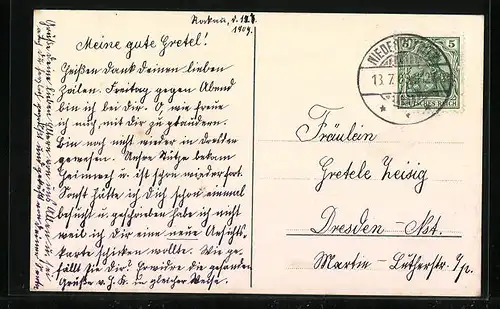 Rockau, d. 12.7.
1909.
Meine gute Gretel!
Heißen Dank Deinen lieben
Zeilen. Freitag gegen Abend
bin ich bei Dir. O, wie freue
ich mich, mit Dir zu plaudern.
Bin noch nicht wieder in Dresden
gewesen. Unser Tutge bekam
Heimweh u. ist schon wieder fort.
Sonst hätte ich Dich schon einmal
besucht u. geschrieben habe ich nicht
weil ich Dir eine neue Ansichts-
karte schicken wollte. Wie ge-
fällt sie Dir? Erwidre die gesandten
Grüße v. H. K. in gleicher Weise.
Grüße Deine lieben Eltern
NIEDER
13.7.09
5
DEUTSCHES REICH
Fräulein
Gretele Zeisig
Dresden-Nst.
Martin-Lutherstr. 1/p.